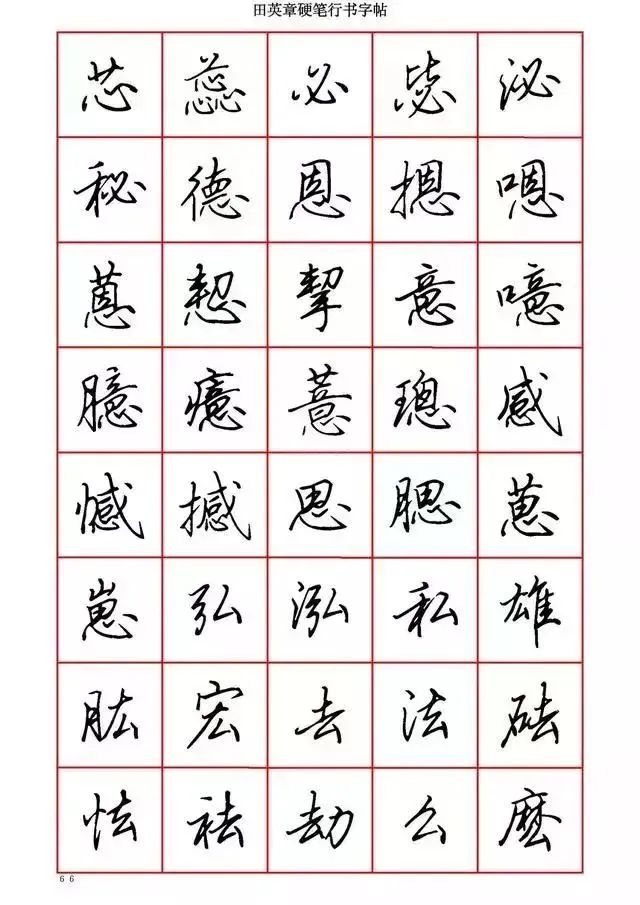 田英章硬笔行书字帖
芯 蕊 必 毖 泌
秘 德 恩 摁 嗯
蒽 恝 挈 意 噫
臆 癔 薏 璁 感
憾 撼 思 腮 葸
崽 弘 泓 私 雄
肱 宏 去 法 砝
怯 祛 劫 么 麽
66